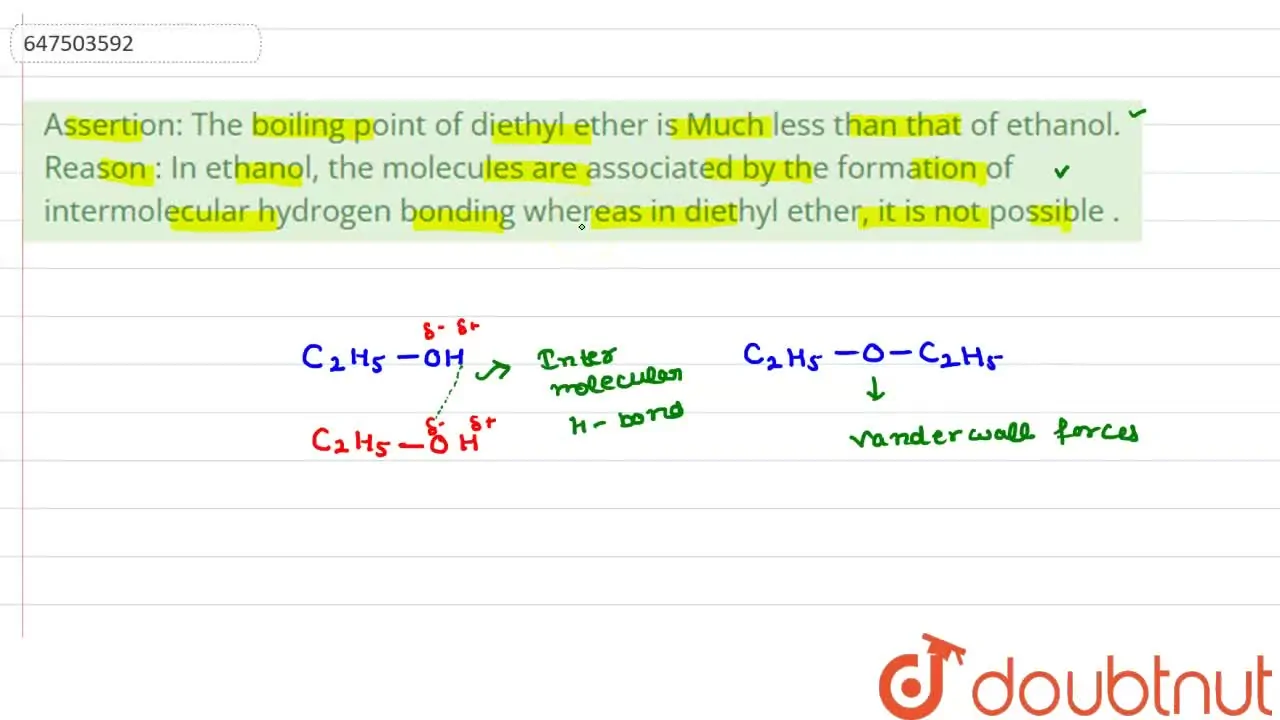 647503592
Assertion: The boiling point of diethyl ether is Much less than that of ethanol.
Reason : In ethanol, the molecules are associated by the formation of
intermolecular hydrogen bonding whereas in diethyl ether, it is not possible .
δ- δ+
C2H5-OH
Inter
molecular
H-bond
δ- δ+
C2H5-OH
C2H5-O-C2H5
vanderwall forces
doubtnut